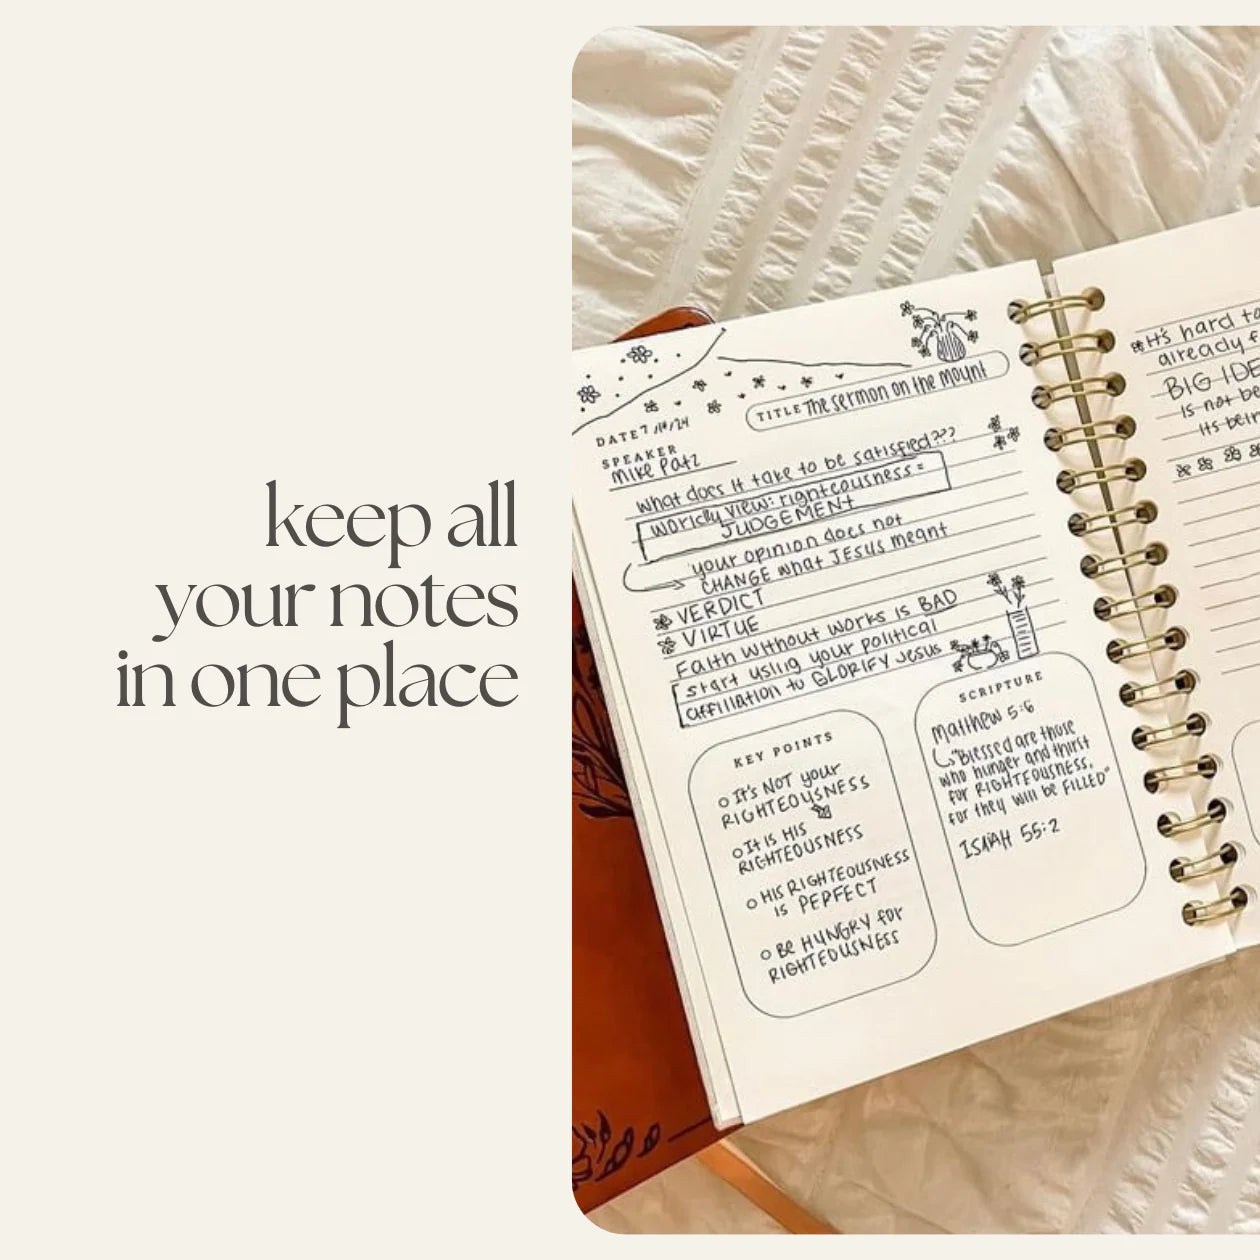 keep all
your notes
in one place
TITLE The sermon on the mount
DATE 7/14/24
SPEAKER
Mike Patz
what does it take to be satisfied???
worldly view: righteousness =
JUDGEMENT
your opinion does not
CHANGE what JESUS meant
VERDICT
VIRTUE
Faith without works is BAD
start using your political
affiliation to GLORIFY Jesus
KEY POINTS
It's NOT your
RIGHTEOUSNESS
It is HIS
RIGHTEOUSNESS
HIS RIGHTEOUSNESS
is PERFECT
Be HUNGRY for
RIGHTEOUSNESS
SCRIPTURE
Matthew 5:6
"Blessed are those
who hunger and thirst
for RIGHTEOUSNESS,
for they will be FILLED"
ISAIAH 55:2
It's hard to
already f
BIG IDE
is not be
its bein